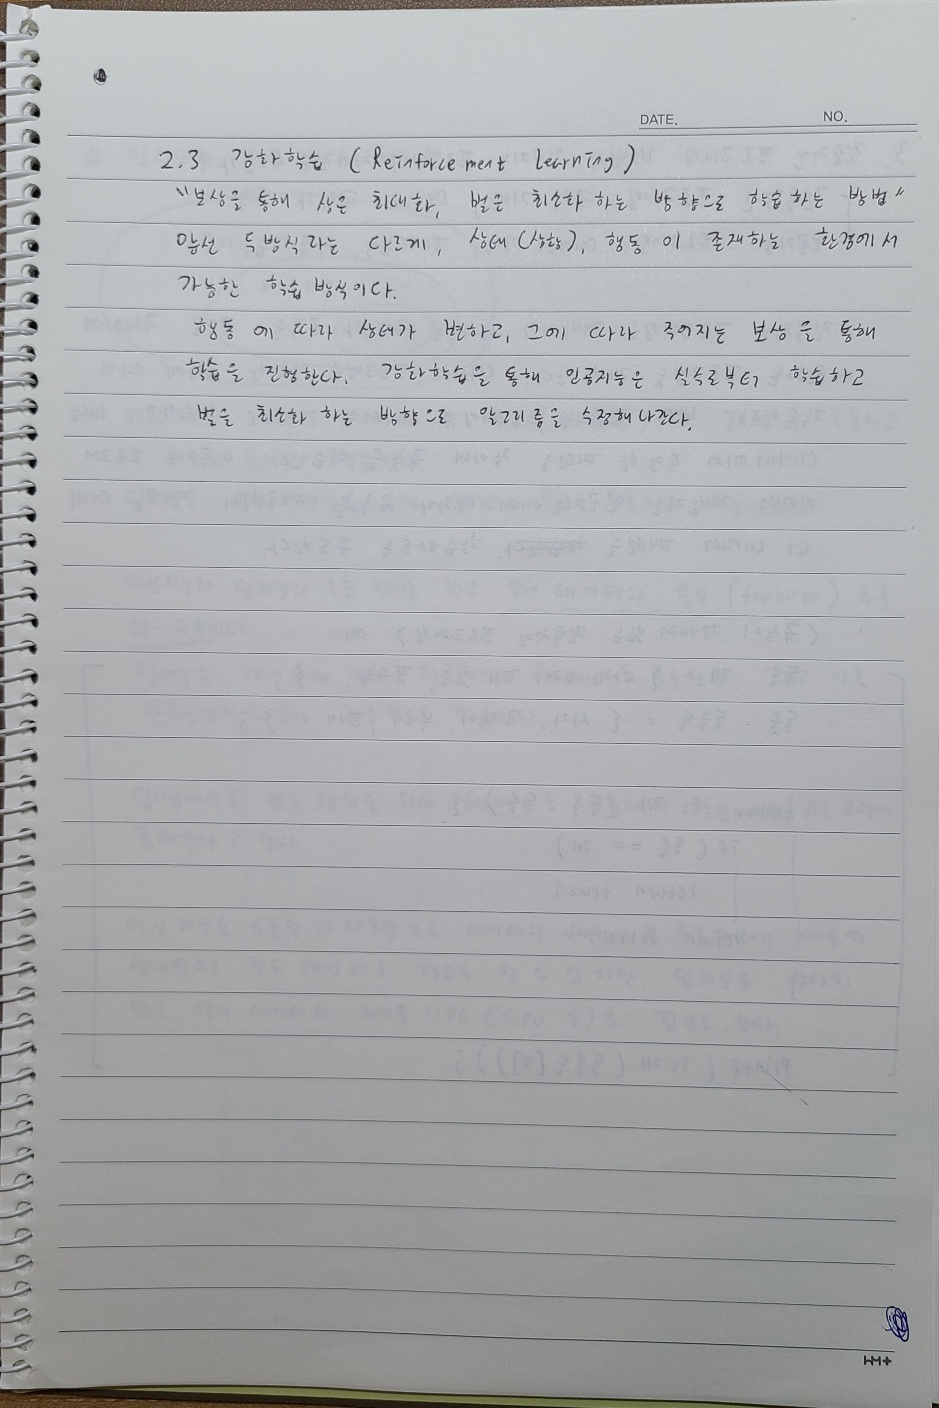 DATE.
NO.
2.3 강화학습 (Reinforcement Learning)
"보상을 통해 상은 최대화, 벌은 최소화 하는 방향으로 학습하는 방법"
앞선 두방식과는 다르게, 상태(상황), 행동 이 존재하는 환경에서
가능한 학습 방식이다.
행동 에 따라 상태가 변하고, 그에 따라 주어지는 보상 을 통해
학습을 진행한다. 강화학습을 통해 인공지능은 실수로부터 학습하고
벌을 최소화 하는 방향으로 알고리즘을 수정해 나간다.